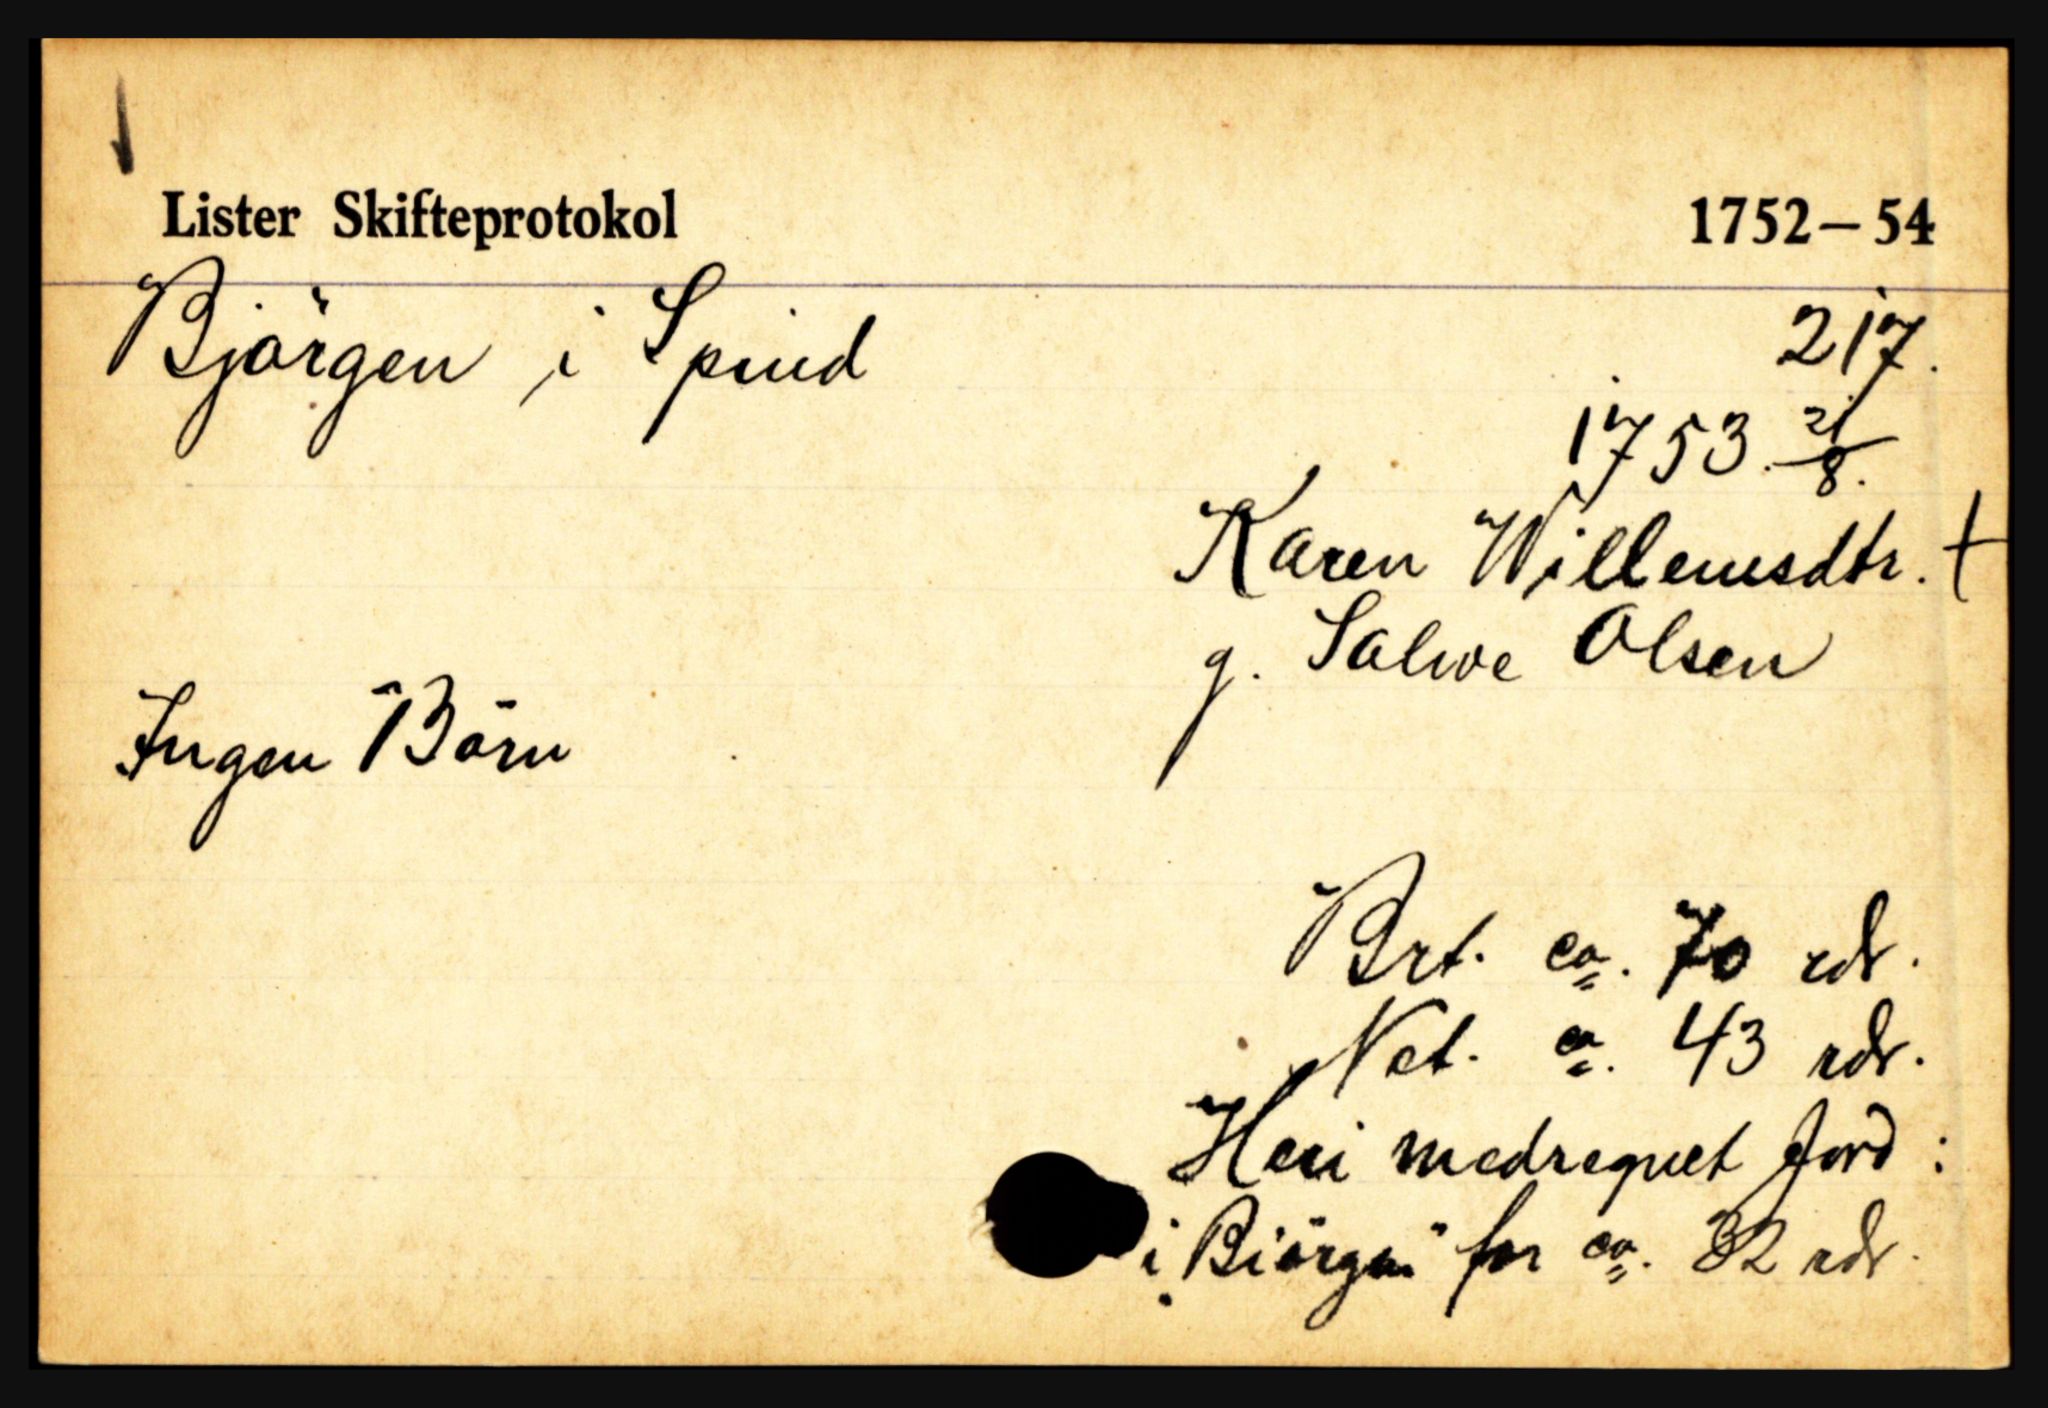 Lister Skifteprotokol 1752-54
Björgen i Spind 217.
1753. 21/8.
Karen Willemsdtr. †
g. Salwe Olsen
Ingen Börn
Brt. ca. 70 rdr.
Net. ca. 43 rdr.
Heri medregnet Jord:
i Biörgen" for ca. 32 rdr.